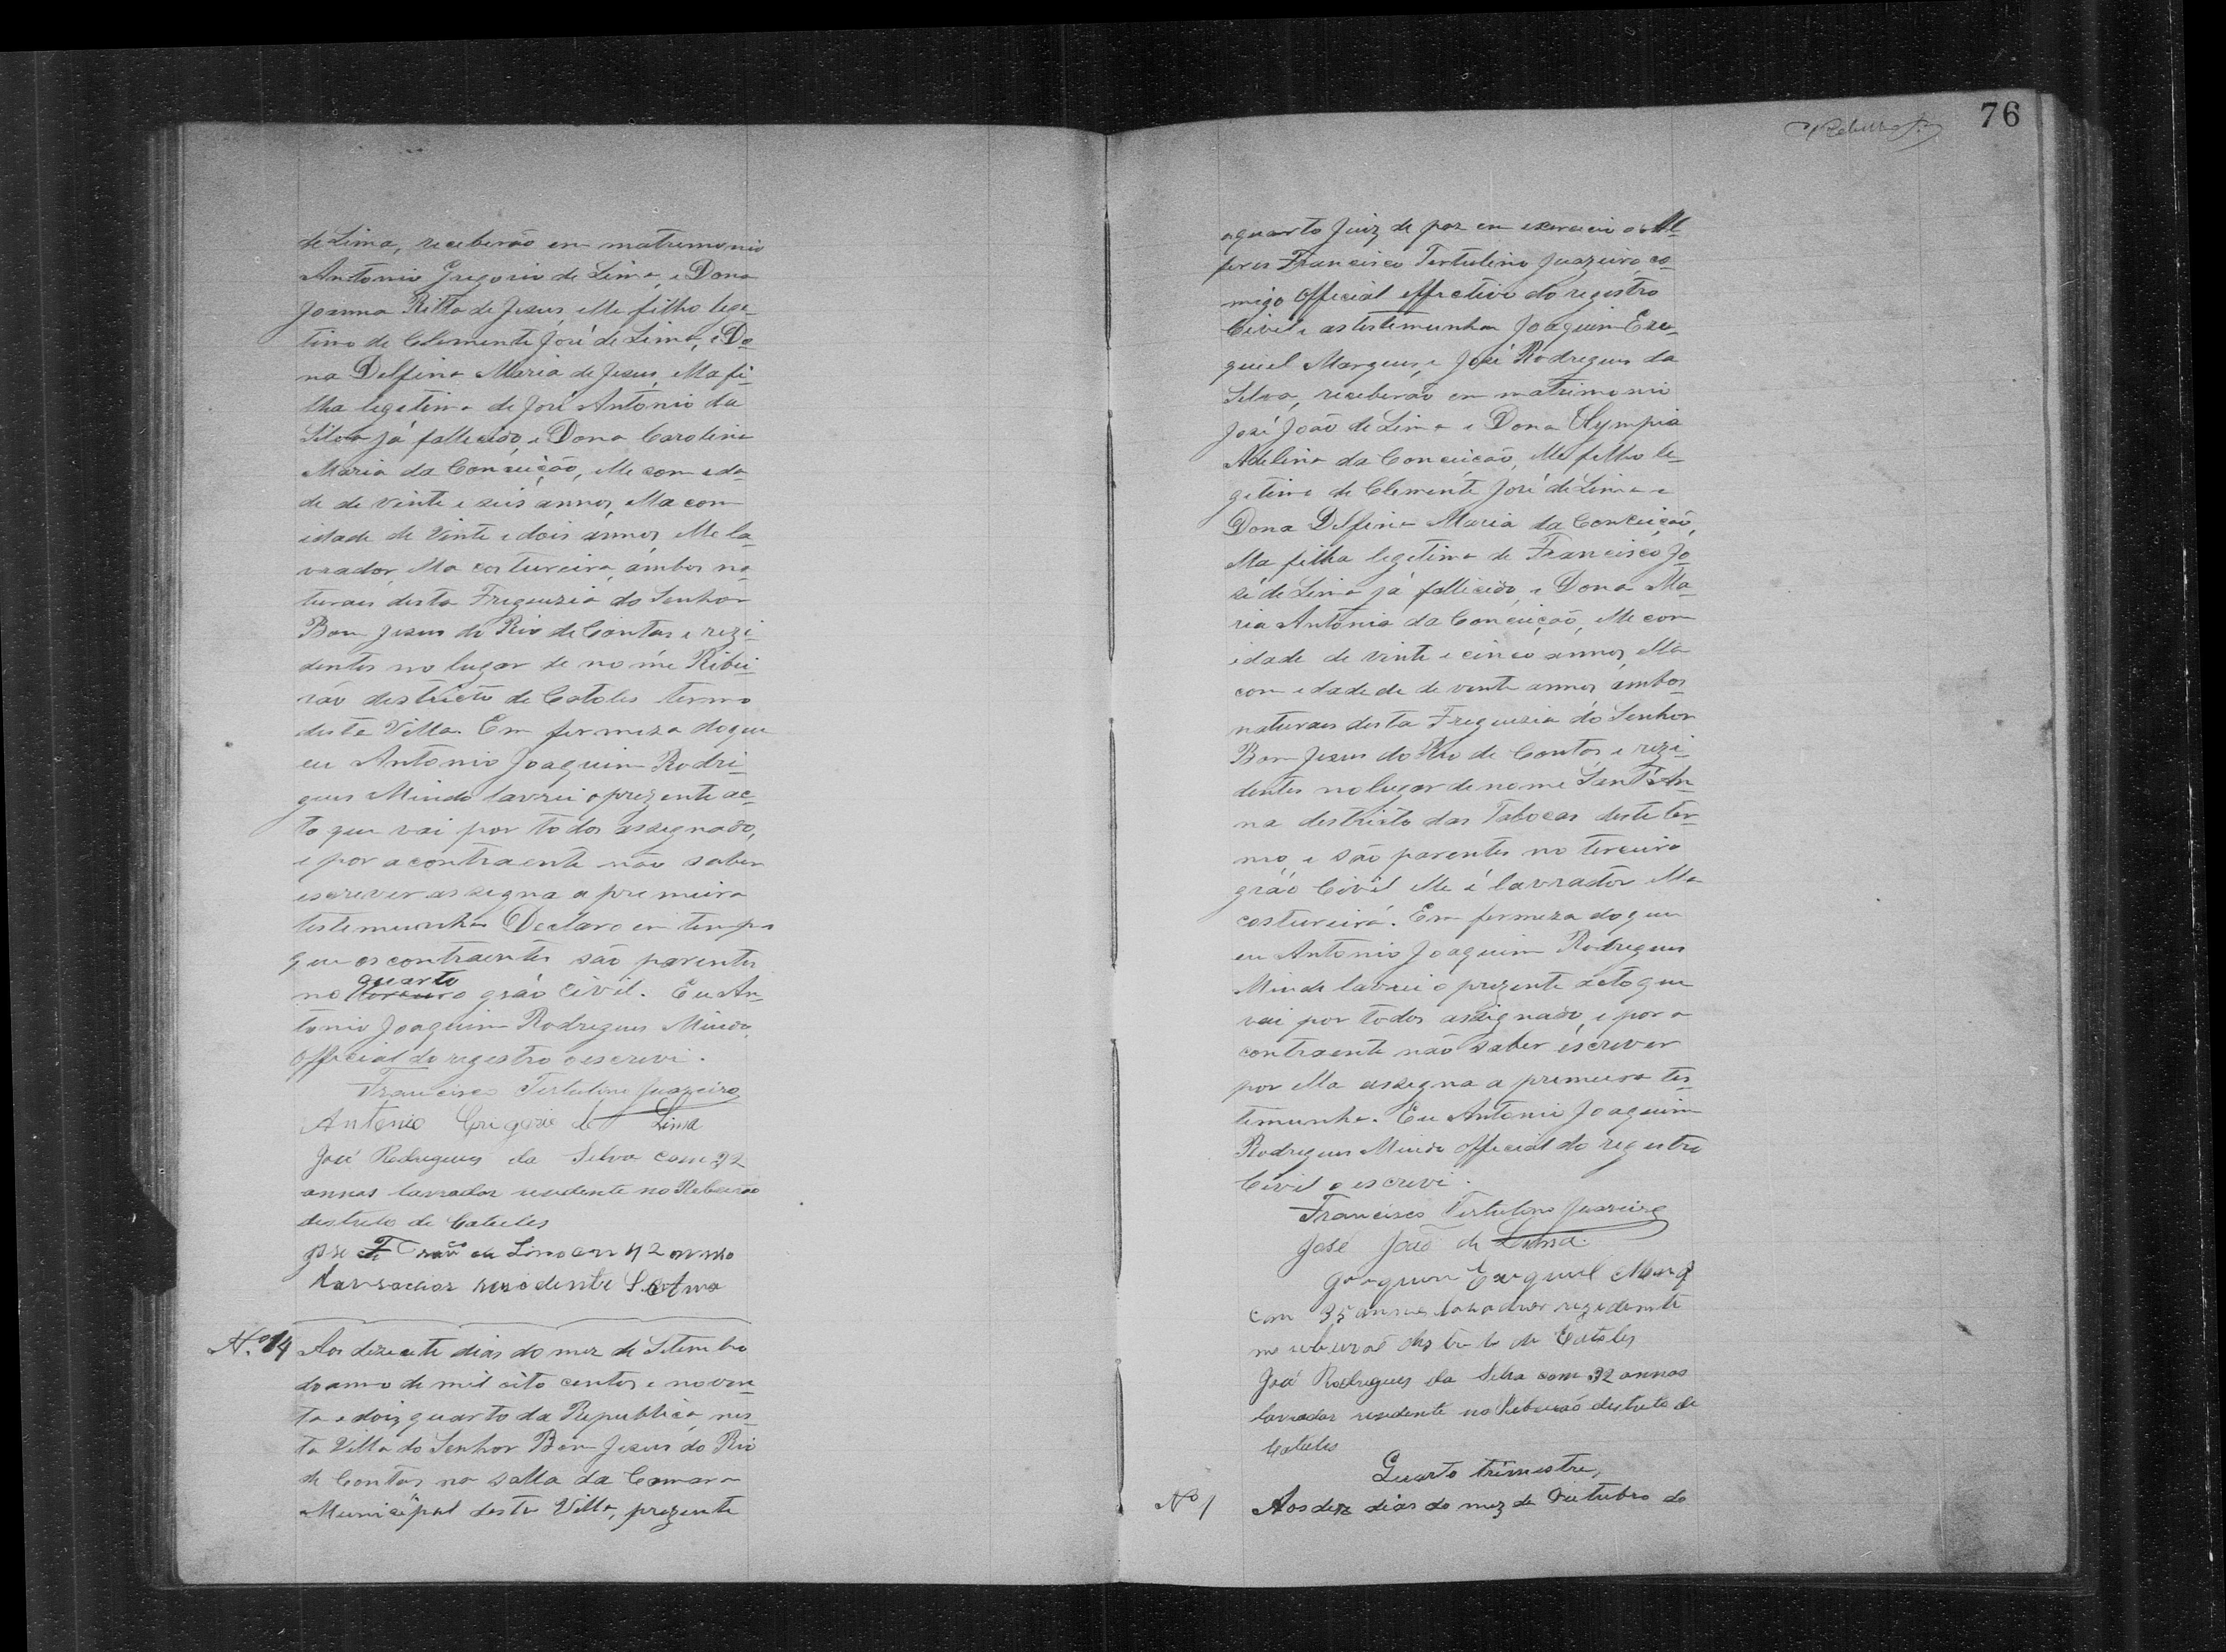 de Lima, receberão em matrimonio
Antonio Gregorio de Lima, e Dona
Joanna Ritta de Jesus, elle filho lege-
timo de Clemente José de Lima, e Do-
na Delfina Maria de Jesus, ella fi-
lha legetima de José Antonio da
Silva já fallecido, e Dona Carolina
Maria da Conceição, elle com eda-
de de vinte e seis annos, ella com
idade de vinte e dois annos, elle la-
vrador, ella costureira, ambos na-
turaes desta Freguezia do Senhor
Bom Jesus do Rio de Contas e rezi-
dentes no lugar de nome Ribei-
rão destricto de Catoles termo
desta Villa. Em fermeza do que
eu Antonio Joaquim Rodri-
gues Mindo lavrei o prezente ac-
to que vai por todos assegnado,
e por a contraente não saber
escrever assegna a premeira
testemunha Declaro em tempo
que os contraentes são parentes
quarto
no terceiro gráo Civil. Eu An-
tonio Joaquim Rodrigues Mindo,
Official do registro o escrevi.
Francisco Tertulino Juazeiro
Antonio Grigorio de Lima
José Rodrigues da Silva com 32
annos lavrador residente no Ribeirão
destrito de Catules
de Lima com 42 annos
lavrador residente S.
N.º 14 Aos dezesete dias do mez de Setembro
do anno de mil oito centos e noven-
ta e dois, quarto da Republica, nes-
ta Villa do Senhor Bom Jesus do Rio
de Contas na salla da Camara
Municipal desta Villa, prezente
76
o quarto Juiz de paz em exercicio o Al-
feres Francisco Tertulino Juazeiro, co-
migo Official effectivo do registro
Civil e as testemunhas Joaquim Eze-
quiel Marques, e José Rodregues da
Silva, receberão em matrimonio
José João de Lima e Dona Olympia
Adelina da Conceicão, elle filho le-
getimo de Clemente José de Lima e
Dona Delfina Maria da Conceição,
ella filha legetima de Francisco Jo-
sé de Lima já fallecido, e Dona Ma-
ria Antonia da Conceição, elle com
idade de vinte e cinco annos, ella
com edade de de vinte annos, ambos
naturaes desta Freguezia do Senhor
Bom Jesus do Rio de Contas e rezi-
dentes no lugar de nome Sant'An-
na destricto das Tabocas deste ter-
mo, e são parentes no terceiro
gráo Civil elle é lavrador ella
costureira. Em fermeza do que
eu Antonio Joaquim Rodregues
Mindo lavrei o prezente acto que
vai por todos assegnado, e por a
contraente não saber escrever
por ella assegna a premeira tes-
temunha. Eu Antonio Joaquim
Rodregues Mindo Official do registro
Civil o escrevi.
Francisco Tertulino Juazeiro
José João de Lima.
Joaquim Ezequiel Marq
com 35 annos lavrador rezedente
no destrito de Catoles
José Rodrigues da Silva com 32 annos
lavrador residente no Ribeirão destrito de
Catules
Quarto trimestre,
Nº 1 Aos dez dias do mez de Outubro do